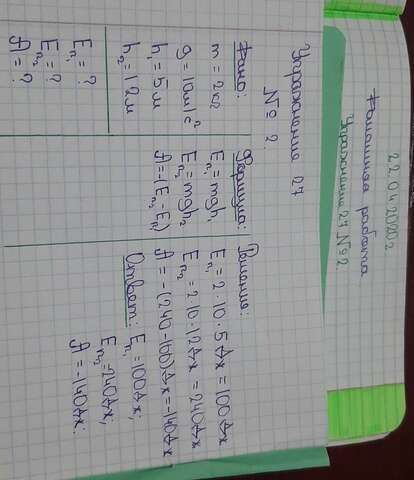 22.04.2020г
Домашняя работа
Упражнение 27 №2
Упражнение 27
№ 2.
Дано:
m = 2кг
g = 10м/с²
h₁ = 5м
h₂ = 12м
Eп₁ = ?
Eп₂ = ?
A = ?
Формула:
Eп₁ = mgh₁
Eп₂ = mgh₂
A = -(Eп₂ - Eп₁)
Решение:
Eп₁ = 2·10·5Дж = 100Дж
Eп₂ = 2·10·12Дж = 240Дж
A = -(240-100)Дж = -140Дж
Ответ: Eп₁ = 100Дж;
Eп₂ = 240Дж;
A = -140Дж.